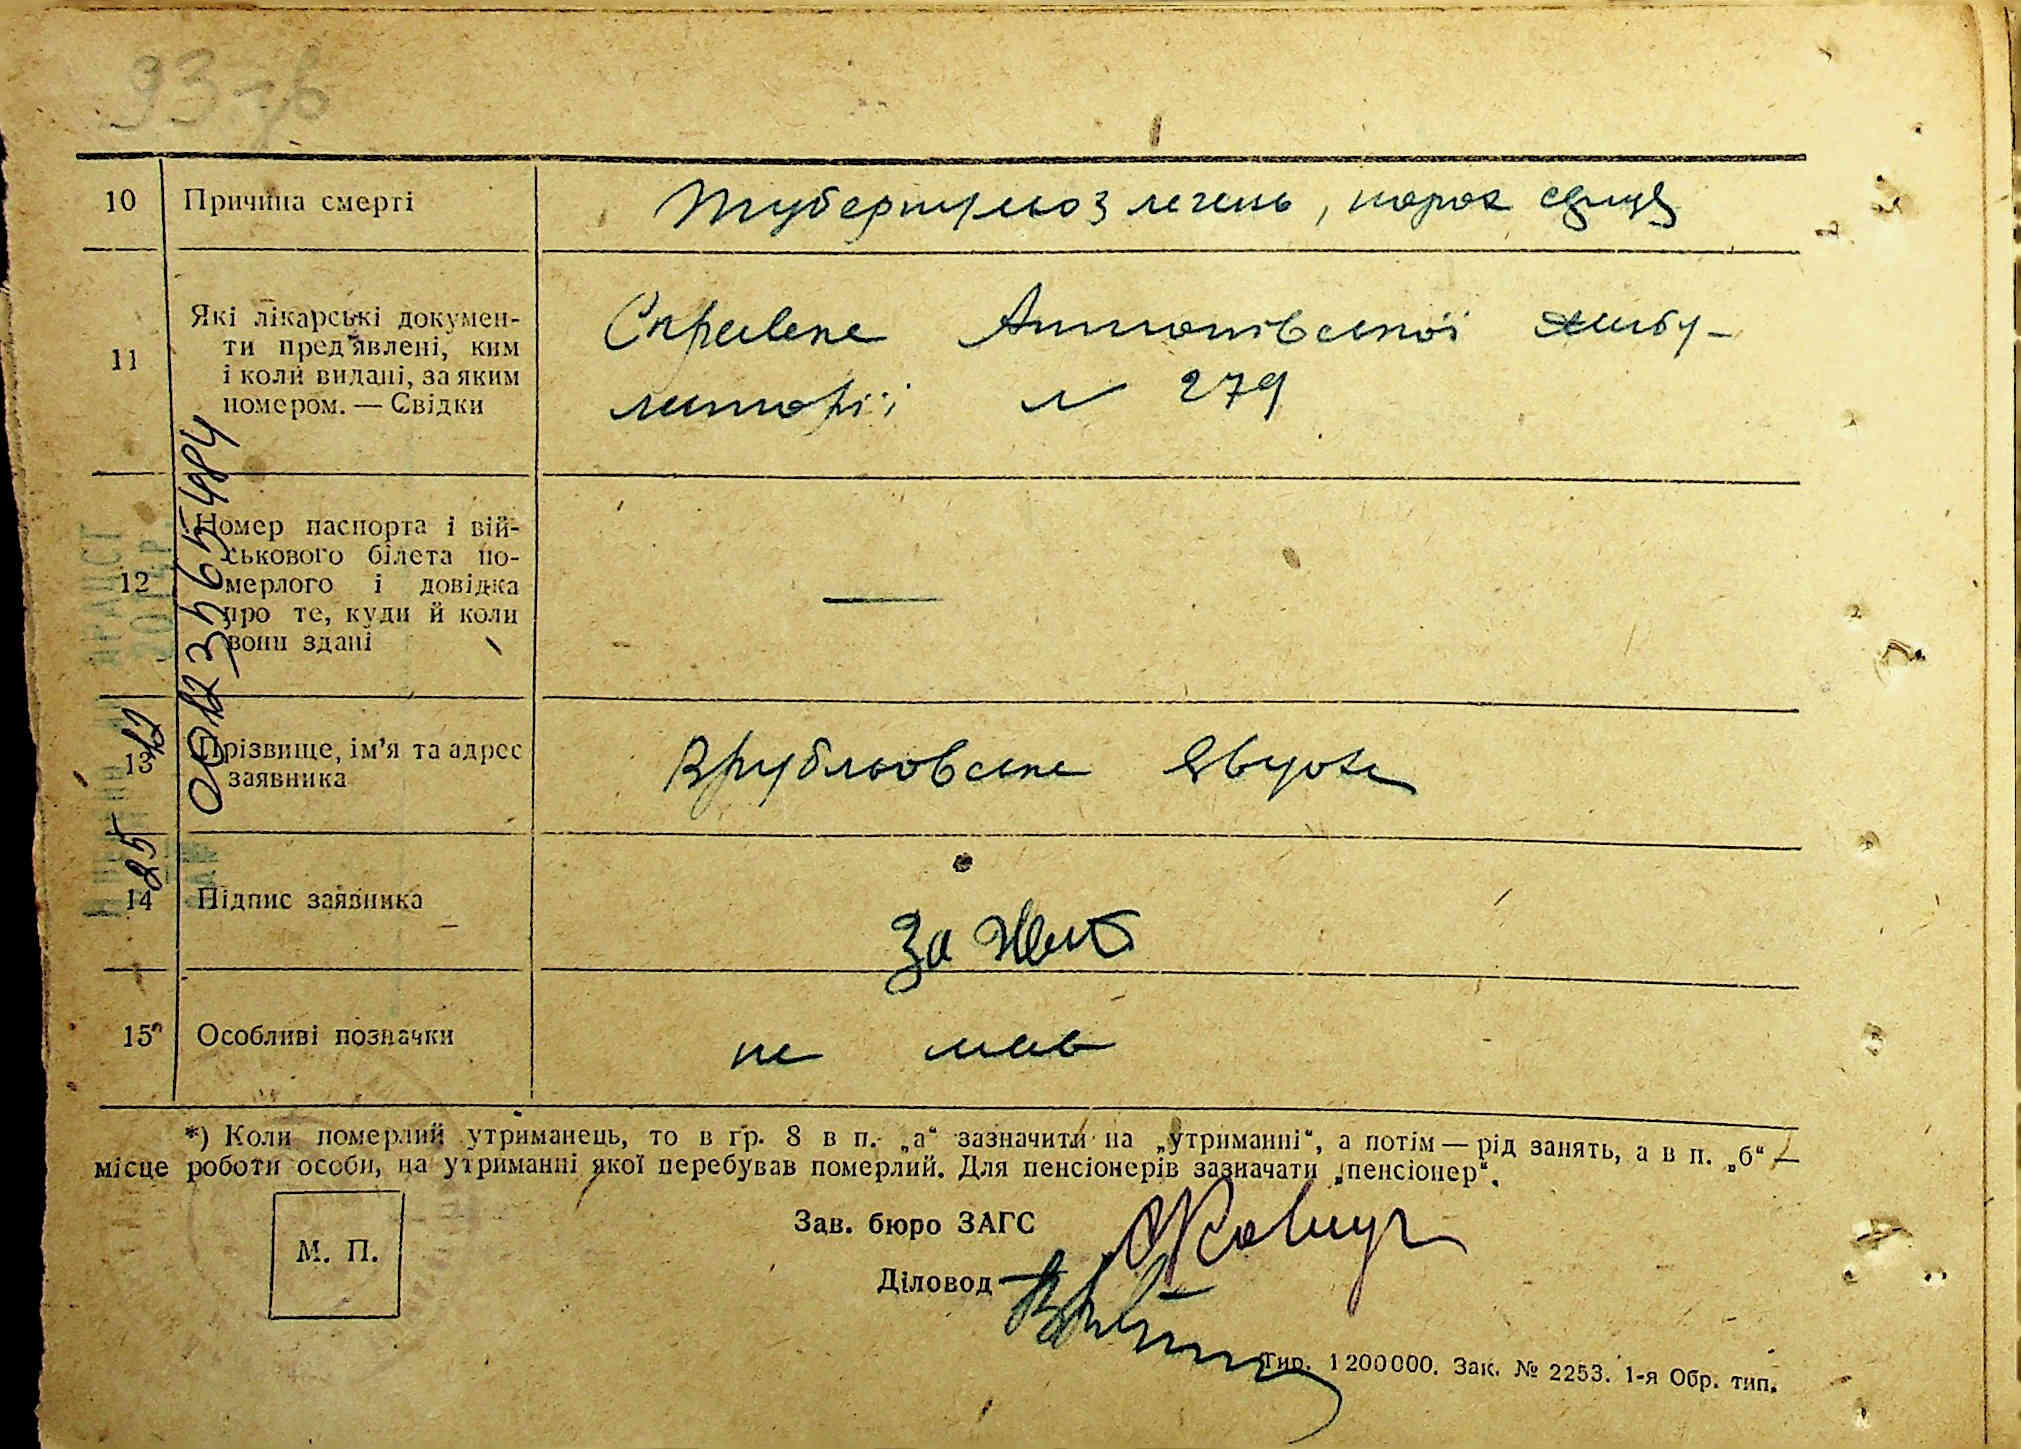 93
10 Причина смерті Туберкульоз легень, порок серця
11 Які лікарські докумен-
ти пред'явлені, ким
і коли видані, за яким
номером. — Свідки
Справка Антонівської амбу-
латорії № 279
12 Номер паспорта і вій-
ськового білета по-
мерлого і довідка
про те, куди й коли
вони здані
—
13 Прізвище, ім'я та адрес
заявника
Врубльовська
14 Підпис заявника За
15 Особливі позначки не мав
*) Коли померлий утриманець, то в гр. 8 в п. „а“ зазначити на „утриманні“, а потім — рід занять, а в п. „б“ —
місце роботи особи, на утриманні якої перебував померлий. Для пенсіонерів зазначати „пенсіонер“.
М. П.
Зав. бюро ЗАГС
Діловод
Тир. 1 200 000. Зак. № 2253. 1-я Обр. тип.